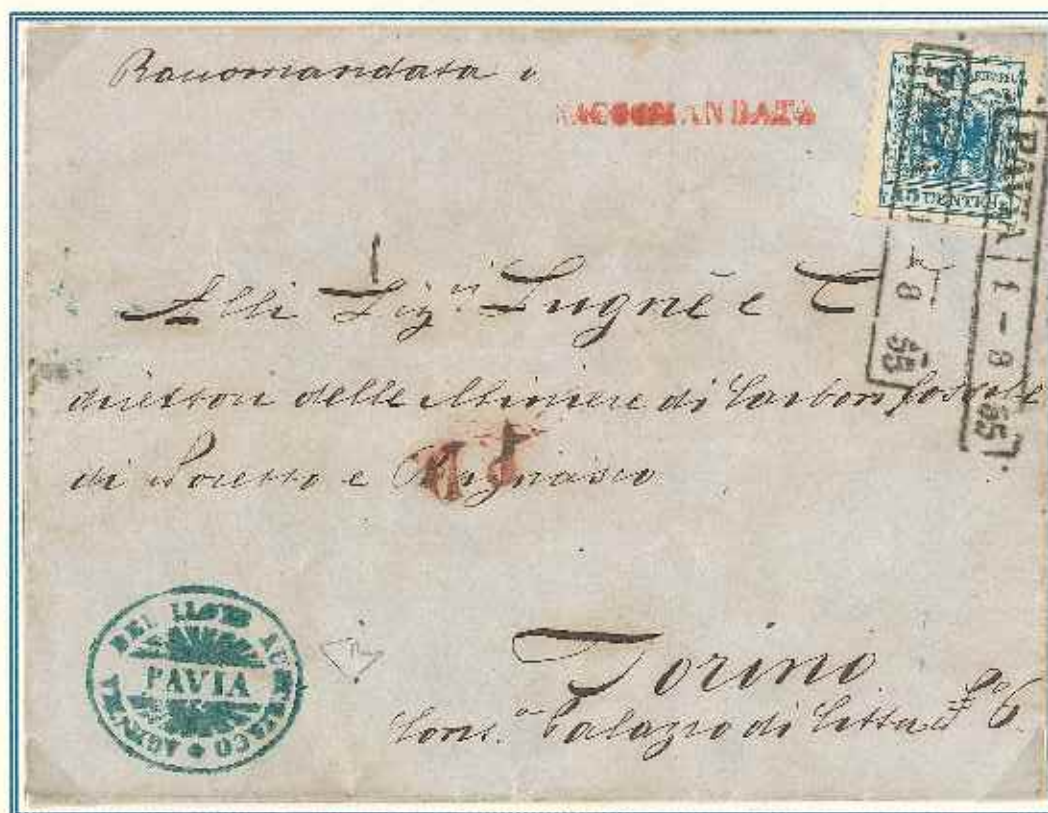 Racomandata
RACCOMANDATA
45 CENTES
PAVIA 1-8 55
PAVIA 1-8 55
Alli Sigri Lugnè e C
direttori delle Miniere di Carbon fossile
di e Bagnasco
AGENZIA DEL LLOYD AUSTRIACO
PAVIA
Torino
Palazzo di Città No 6